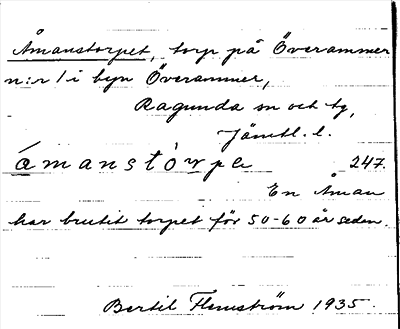 Åmanstorpet, torp på Överammer
n:r 1 i byn Överammer,
Ragunda sn och tg,
Jämtl. l.
åmanstòrpe 247.
En Åman
har brutit torpet för 50-60 år sedan.
Bertil Flemström 1935.